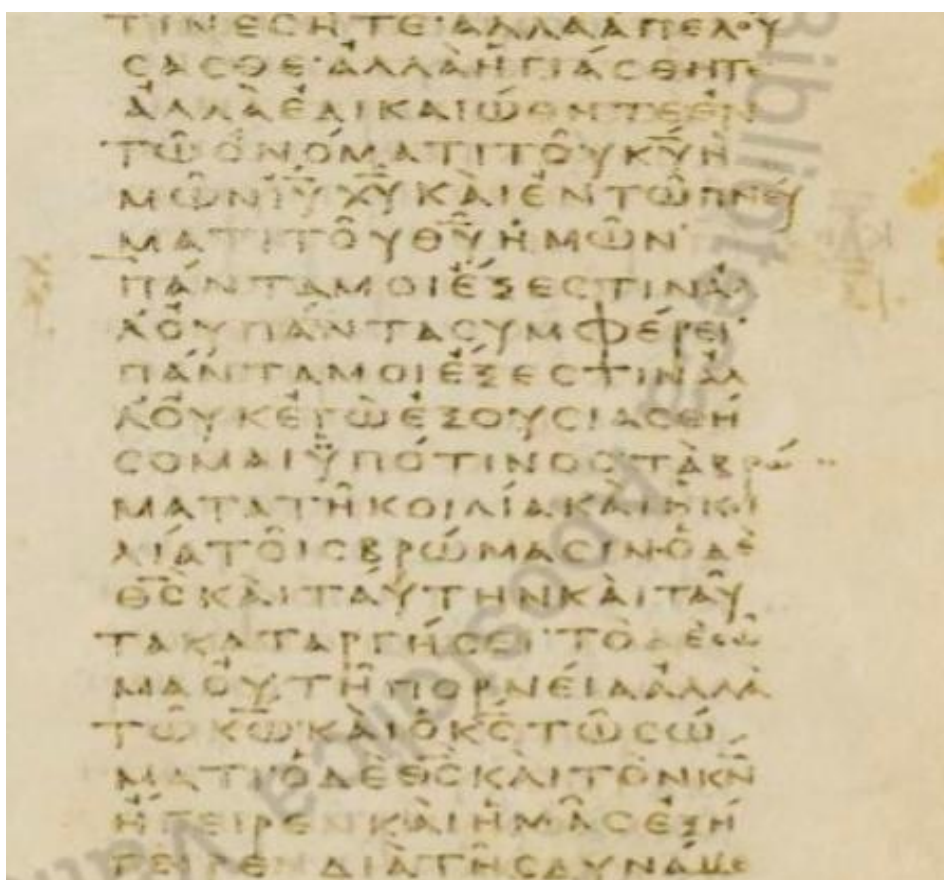 ΤΙΝΕϹΗΤΕ·ΑΛΛΑΑΠΕΛΟΥ
ϹΑϹΘΕ·ΑΛΛΑΗΓΙΑϹΘΗΤΕ
ΑΛΛΑΕΔΙΚΑΙΩΘΗΤΕΕΝ
ΤΩΟΝΟΜΑΤΙΤΟΥΚ̅Υ̅Η
ΜΩΝΙ̅Υ̅Χ̅Υ̅ΚΑΙΕΝΤΩΠΝΕΥ
ΜΑΤΙΤΟΥΘ̅Υ̅ΗΜΩΝ·
ΠΑΝΤΑΜΟΙΕΞΕϹΤΙΝΑΛ
ΛΟΥΠΑΝΤΑϹΥΜΦΕΡΕΙ·
ΠΑΝΤΑΜΟΙΕΞΕϹΤΙΝΑΛ
ΛΟΥΚΕΓΩΕΞΟΥϹΙΑϹΘΗ
ϹΟΜΑΙΫΠΟΤΙΝΟϹΤΑΒΡΩ
ΜΑΤΑΤΗΚΟΙΛΙΑΚΑΙΗΚΟΙ
ΛΙΑΤΟΙϹΒΡΩΜΑϹΙΝ·ΟΔΕ
Θ̅Ϲ̅ΚΑΙΤΑΥΤΗΝΚΑΙΤΑΥ
ΤΑΚΑΤΑΡΓΗϹΕΙ·ΤΟΔΕϹΩ
ΜΑΟΥΤΗΠΟΡΝΕΙΑΑΛΛΑ
ΤΩΚ̅Ω̅ΚΑΙΟΚ̅Ϲ̅ΤΩϹΩ
ΜΑΤΙΟΔΕΘ̅Ϲ̅ΚΑΙΤΟΝΚ̅Ν̅
ΗΓΕΙΡΕΝΚΑΙΗΜΑϹΕΞΗ
ΓΕΙΡΕΝΔΙΑΤΗϹΔΥΝΑΜΕ